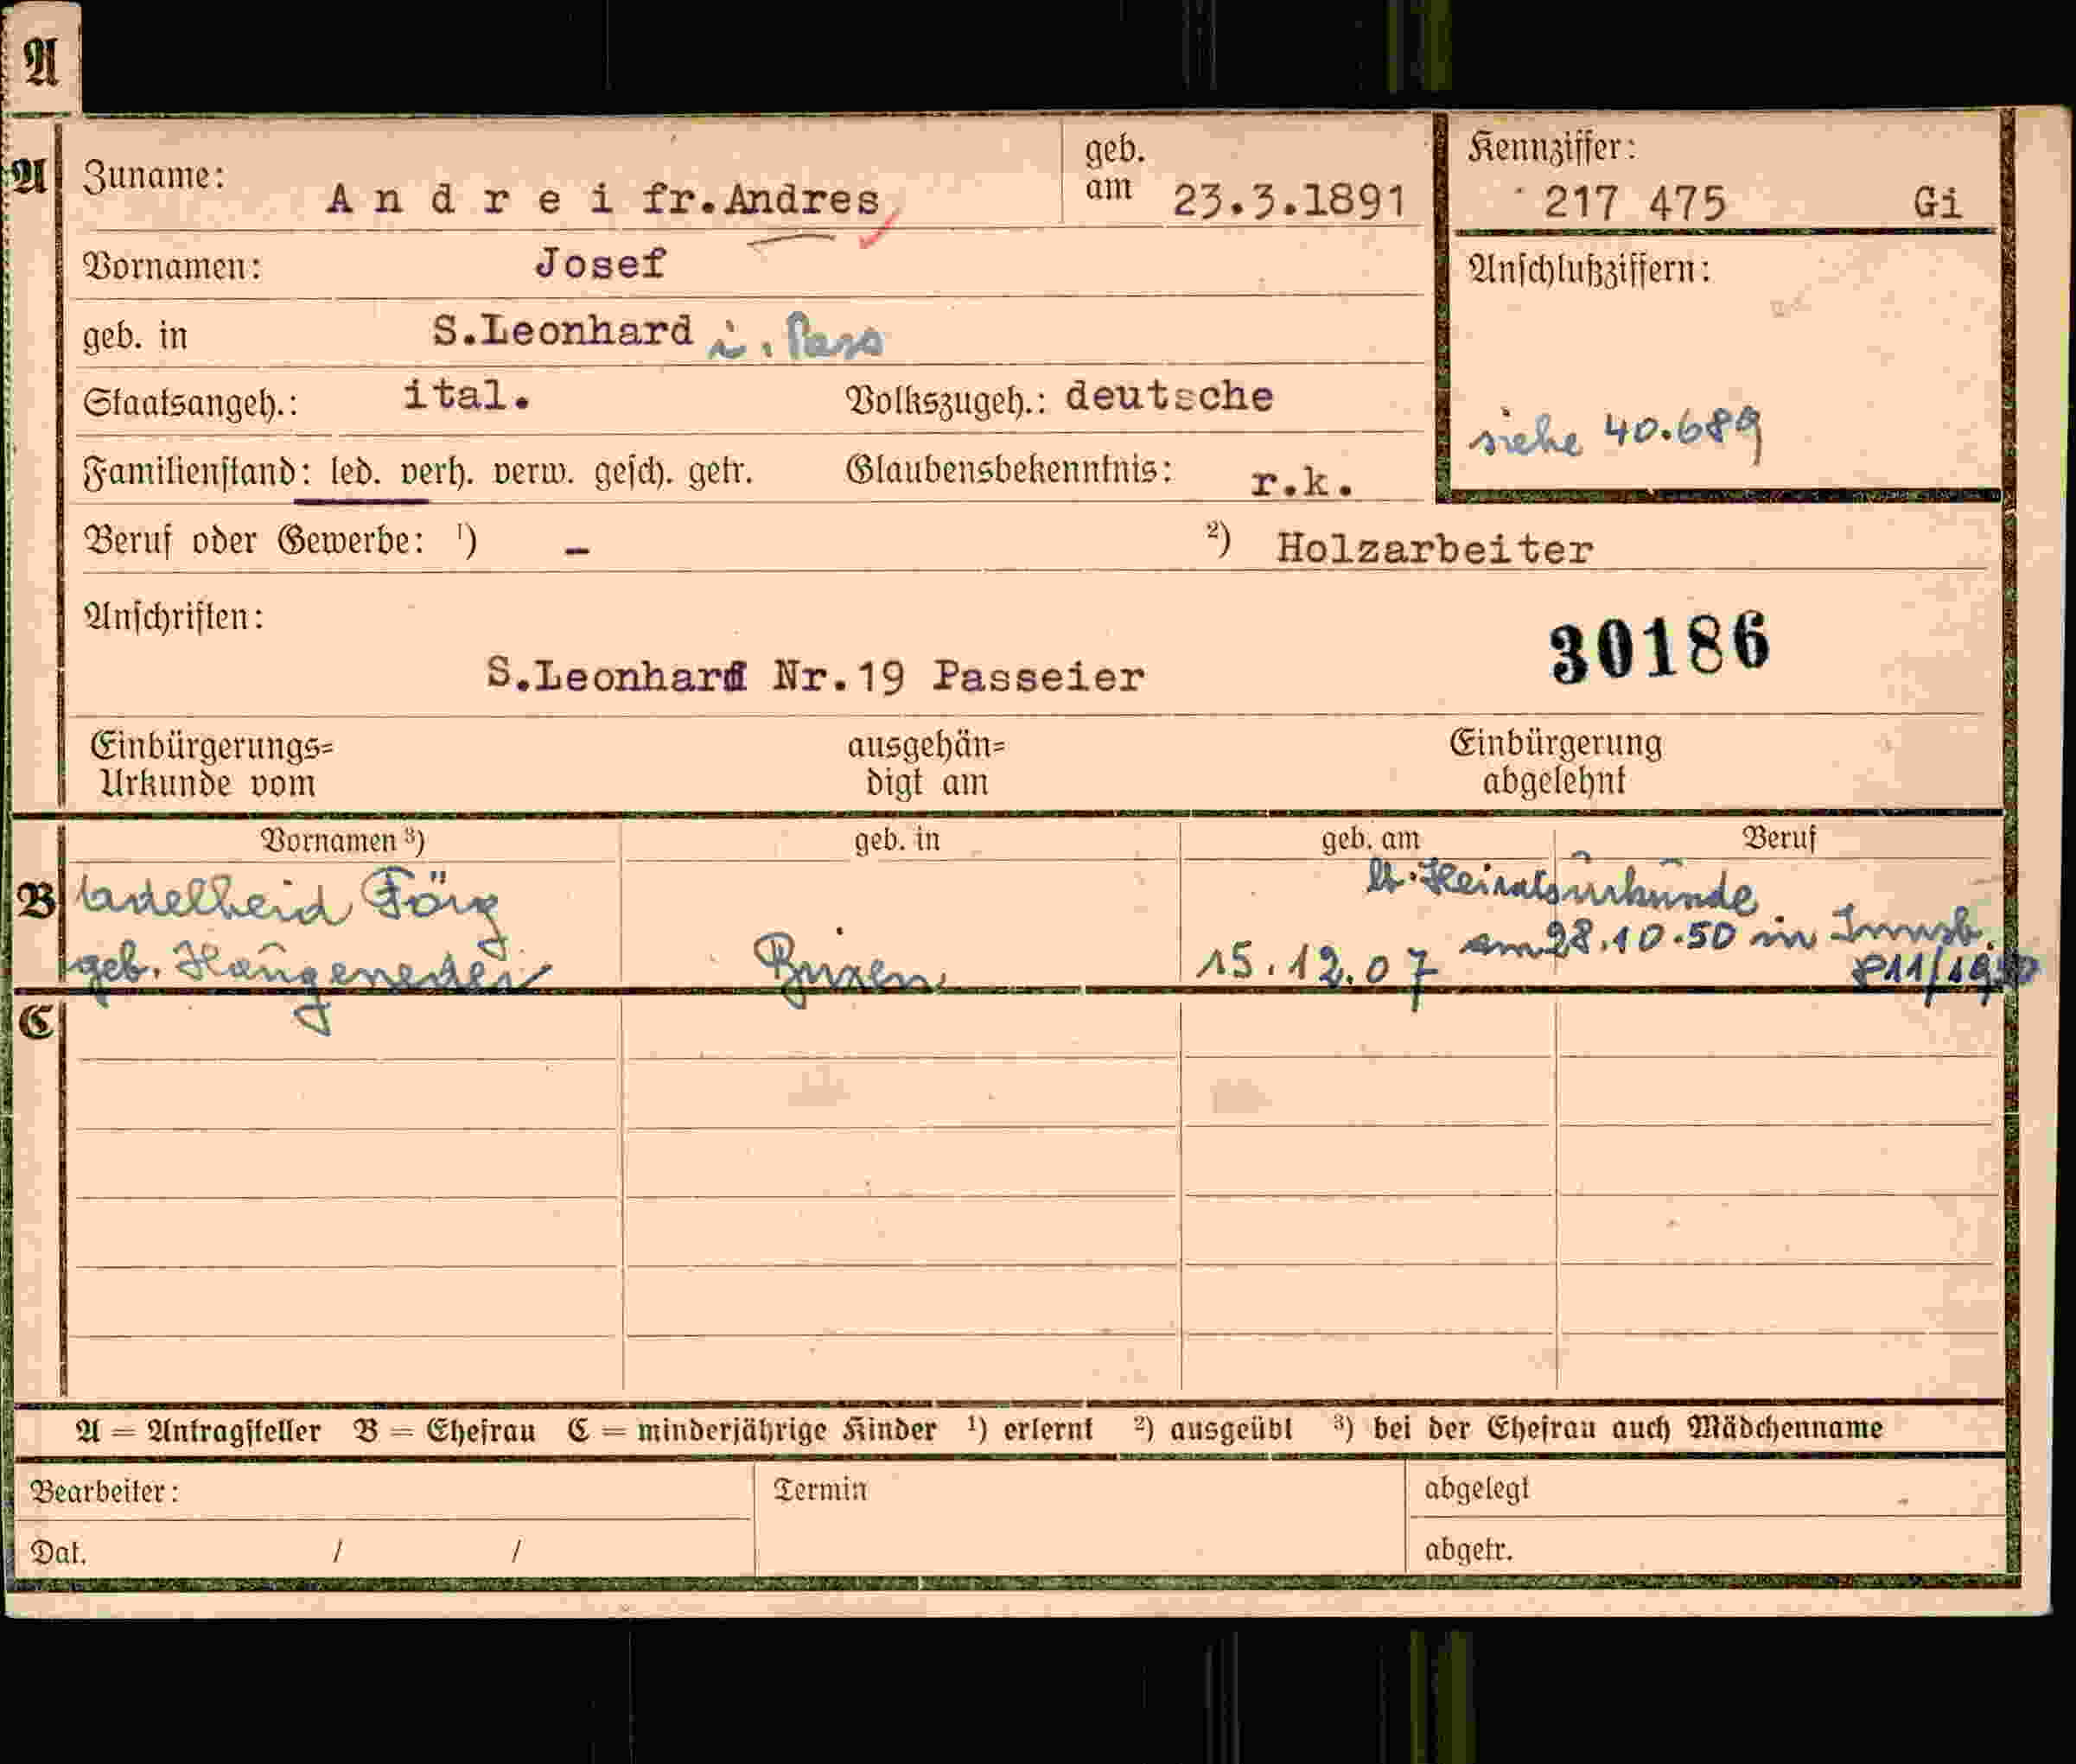 A
A
Zuname: Andrei fr.Andres
geb. am 23.3.1891
Kennziffer: 217 475 Gi
Vornamen: Josef
Anschlußziffern:
geb. in S.Leonhard i. Pass
Staatsangeh.: ital. Volkszugeh.: deutsche
siehe 40.689
Familienstand: led. verh. verw. gesch. getr. Glaubensbekenntnis: r.k.
Beruf oder Gewerbe: ¹) – ²) Holzarbeiter
Anschriften:
30186
S.Leonhard Nr.19 Passeier
Einbürgerungs=
Urkunde vom
ausgehän=
digt am
Einbürgerung
abgelehnt
Vornamen ³) geb. in geb. am Beruf
B Adelheid Förg
lt. Heiratsurkunde
am 28.10.50 in Innsb.
geb. Brixen 15.12.07
811/1950
C
A = Antragsteller B = Ehefrau C = minderjährige Kinder ¹) erlernt ²) ausgeübt ³) bei der Ehefrau auch Mädchenname
Bearbeiter: Termin abgelegt
Dat. / / abgetr.